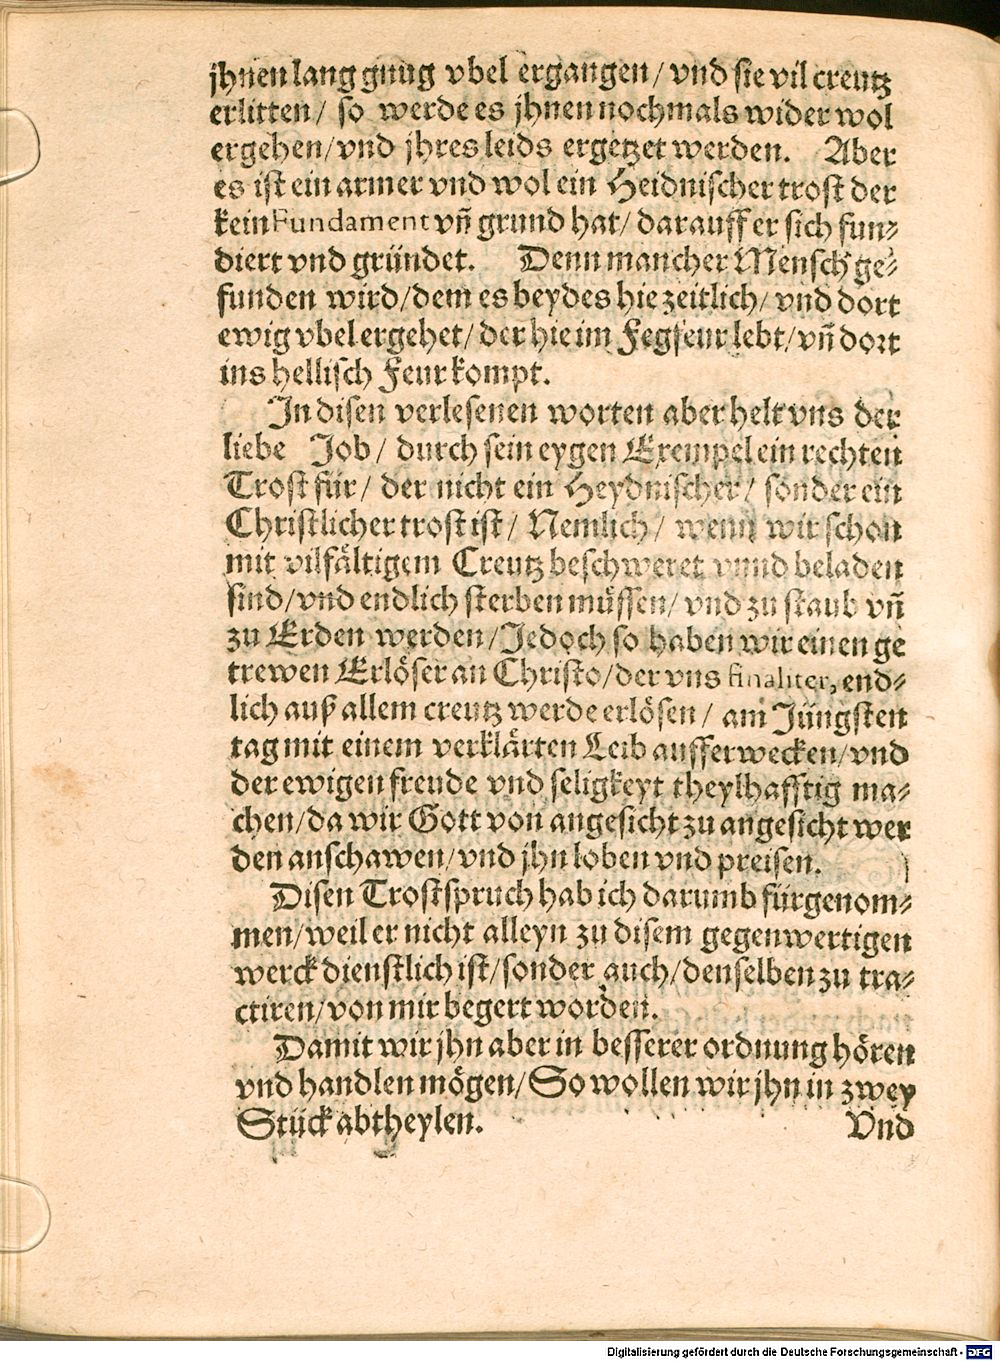 jhnen lang gnug vbel ergangen / vnd sie vil creutz
erlitten / so werde es jhnen nochmals wider wol
ergehen / vnd jhres leids ergetzet werden. Aber
es ist ein armer vnd wol ein Heidnischer trost der
kein Fundament vñ grund hat / darauff er sich fun⸗
diert vnd gründet. Denn mancher Mensch ge⸗
funden wird / dem es beydes hie zeitlich / vnd dort
ewig vbel ergehet / der hie im Fegfeur lebt / vñ dort
ins hellisch Feur kompt.
In disen verlesenen worten aber helt vns der
liebe Job / durch sein eygen Exempel ein rechten
Trost für / der nicht ein Heydnischer / sonder ein
Christlicher trost ist / Nemlich / wenn wir schon
mit vilfältigem Creutz beschweret vnnd beladen
sind / vnd endlich sterben müssen / vnd zu staub vñ
zu Erden werden / Jedoch so haben wir einen ge
trewen Erlöser an Christo / der vns finaliter, end⸗
lich auß allem creutz werde erlösen / am Jüngsten
tag mit einem verklärten Leib aufferwecken / vnd
der ewigen freude vnd seligkeyt theylhafftig ma⸗
chen / da wir Gott von angesicht zu angesicht wer
den anschawen / vnd jhn loben vnd preisen.
Disen Trostspruch hab ich darumb fürgenom⸗
men / weil er nicht alleyn zu disem gegenwertigen
werck dienstlich ist / sonder auch / denselben zu tra⸗
ctiren / von mir begert worden.
Damit wir jhn aber in besserer ordnung hören
vnd handlen mögen / So wollen wir jhn in zwey
Stück abtheylen. Vnd
Digitalisierung gefördert durch die Deutsche Forschungsgemeinschaft - DFG